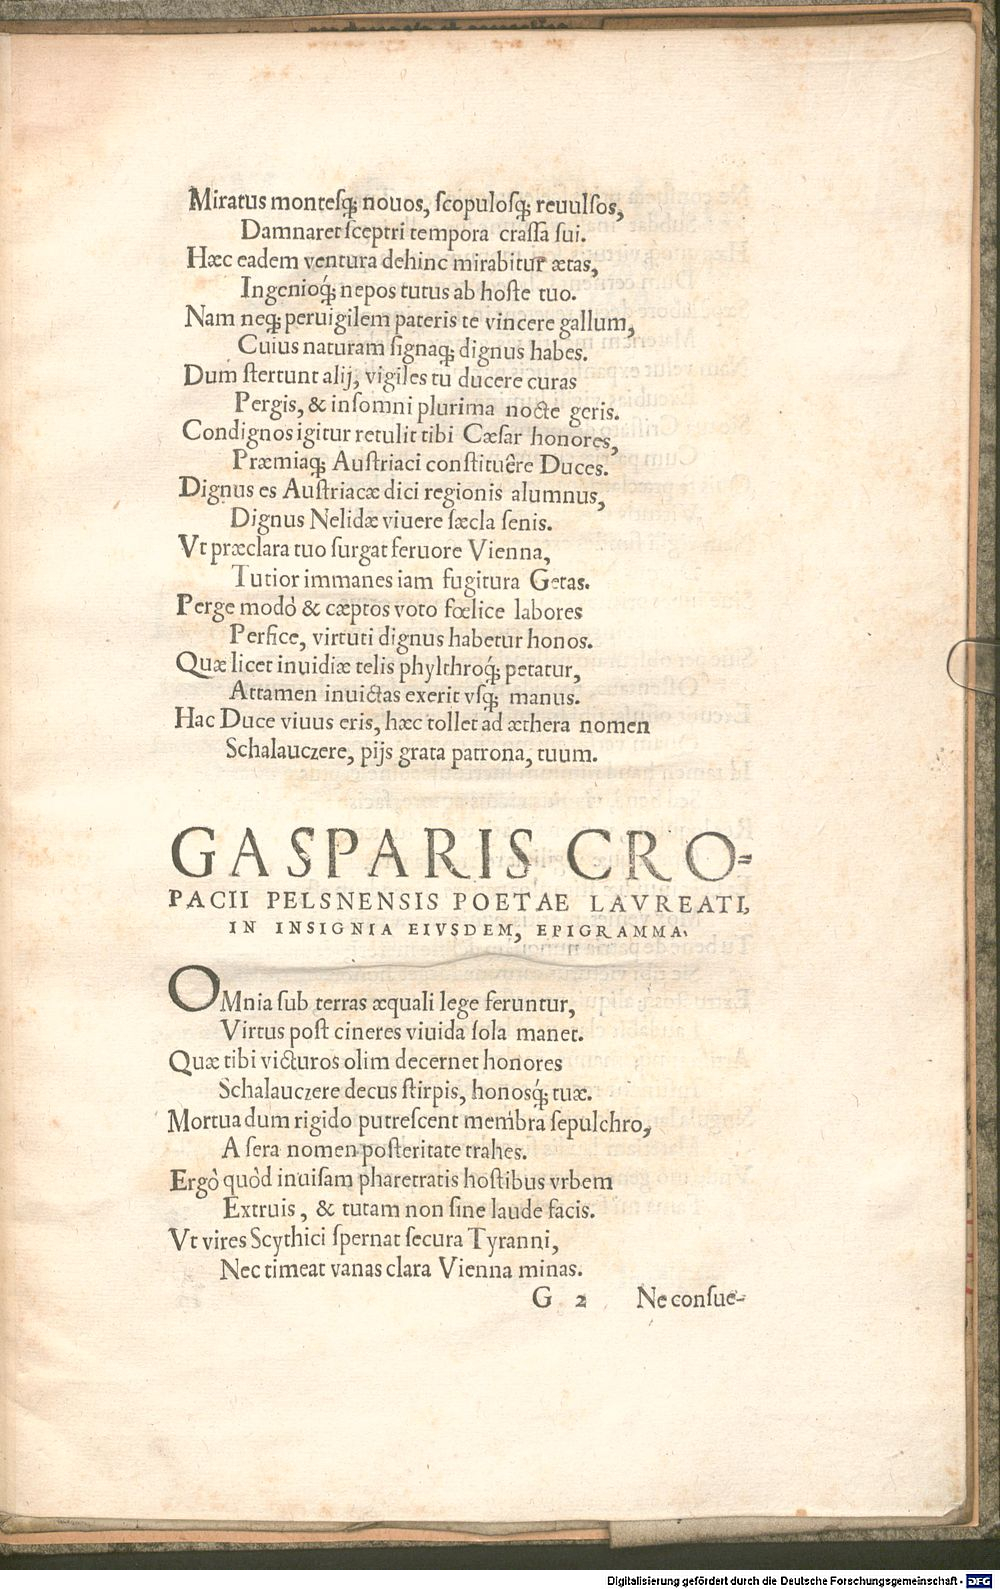 Miratus montesq́; nouos, scopulosq́; reuulsos,
Damnaret sceptri tempora crassa sui.
Hæc eadem ventura dehinc mirabitur ætas,
Ingenioq́; nepos tutus ab hoste tuo.
Nam neq; peruigilem pateris te vincere gallum,
Cuius naturam signaq; dignus habes.
Dum stertunt alij, vigiles tu ducere curas
Pergis, & insomni plurima nocte geris.
Condignos igitur retulit tibi Cæsar honores,
Præmiaq; Austriaci constituêre Duces.
Dignus es Austriacæ dici regionis alumnus,
Dignus Nelidæ viuere sæcla senis.
Vt præclara tuo surgat feruore Vienna,
Tutior immanes iam fugitura Getas.
Perge modò & cæptos voto fœlice labores
Perfice, virtuti dignus habetur honos.
Quæ licet inuidiæ telis phylthroq́; petatur,
Attamen inuictas exerit vsq; manus.
Hac Duce viuus eris, hæc tollet ad æthera nomen
Schalauczere, pijs grata patrona, tuum.
GASPARIS CRO=
PACII PELSNENSIS POETAE LAVREATI,
IN INSIGNIA EIVSDEM, EPIGRAMMA.
OMnia sub terras æquali lege feruntur,
Virtus post cineres viuida sola manet.
Quæ tibi victuros olim decernet honores
Schalauczere decus stirpis, honosq́; tuæ.
Mortua dum rigido putrescent membra sepulchro,
A sera nomen posteritate trahes.
Ergò quòd inuisam pharetratis hostibus vrbem
Extruis, & tutam non sine laude facis.
Vt vires Scythici spernat secura Tyranni,
Nec timeat vanas clara Vienna minas.
G 2 Ne consue-
Digitalisierung gefördert durch die Deutsche Forschungsgemeinschaft - DFG